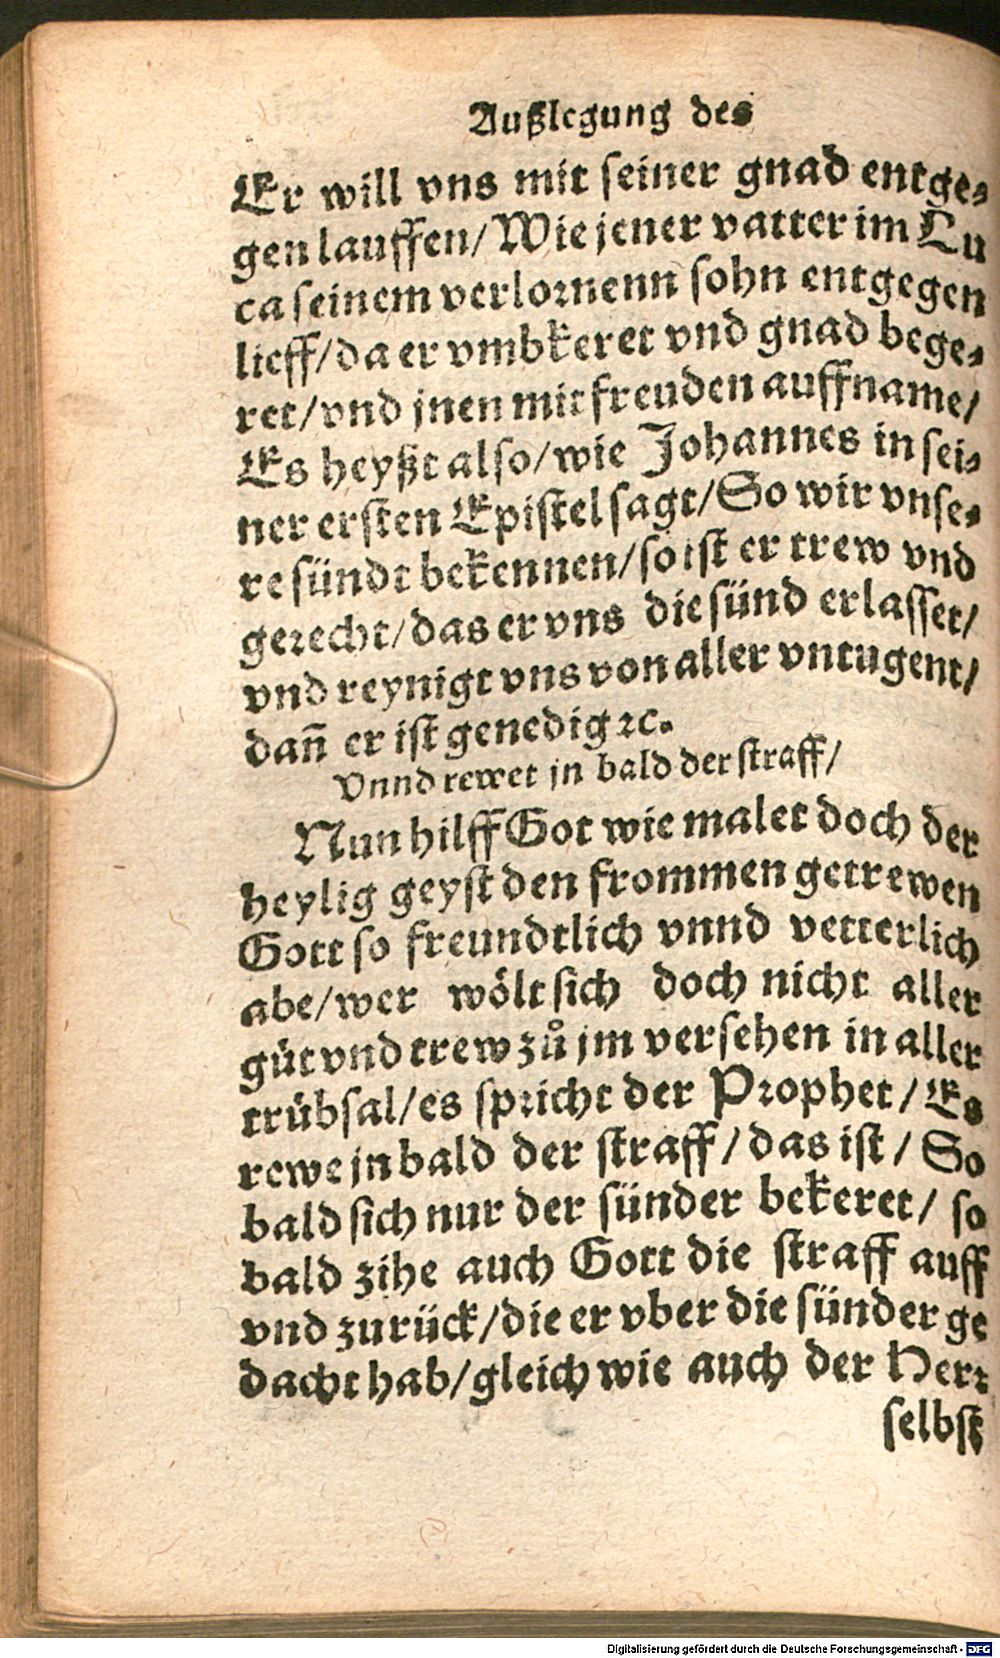 Außlegung des
Er will vns mit seiner gnad entge⸗
gen lauffen/ Wie jener vatter im Lu
ca seinem verlornenn sohn entgegen
lieff/ da er vmbkeret vnd gnad bege⸗
ret/ vnd jnen mit freuden auffname/
Es heyßt also/ wie Johannes in sei⸗
ner ersten Epistel sagt/ So wir vnse⸗
re sündt bekennen/ so ist er trew vnd
gerecht/ das er vns die sünd erlasset/
vnd reynigt vns von aller vntugent/
dañ er ist genedig ꝛc.
Vnnd rewet jn bald der straff/
Nun hilff Got wie malet doch der
heylig geyst den frommen getrewen
Gott so freundtlich vnnd vetterlich
abe/ wer wölt sich doch nicht aller
güt vnd trew zů jm versehen in aller
trübsal/ es spricht der Prophet/ Es
rewe jn bald der straff/ das ist/ So
bald sich nur der sünder bekeret/ so
bald zihe auch Gott die straff auff
vnd zurück/ die er vber die sünder ge
dacht hab/ gleich wie auch der Herr
selbst
Digitalisierung gefördert durch die Deutsche Forschungsgemeinschaft - DFG